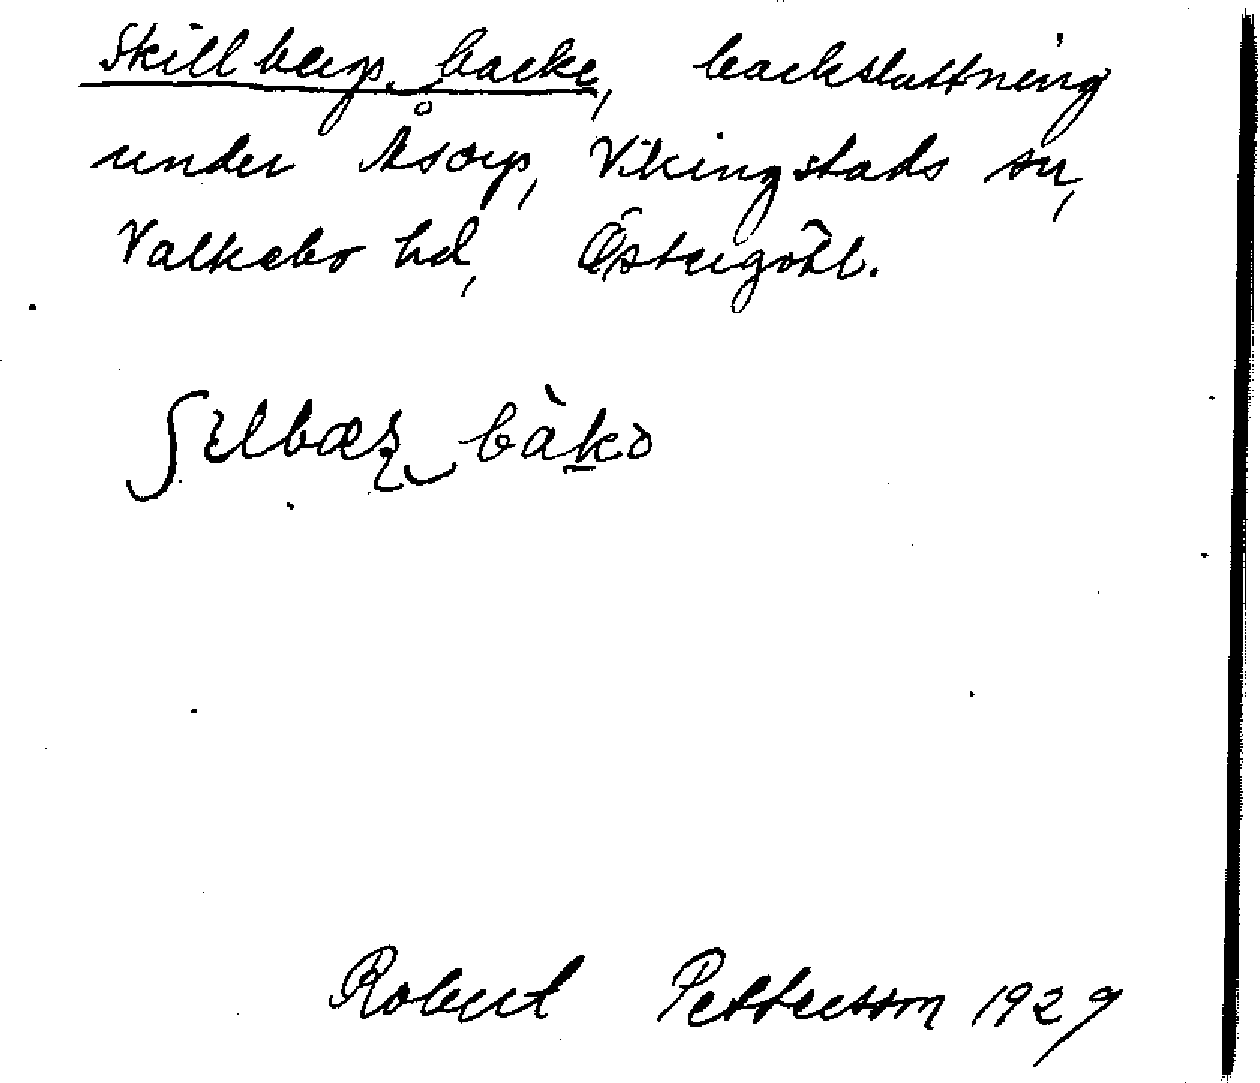 Skillbergs backe, backsluttning
under Åsorp, Vikingstads sn,
Valkebo hd, Östergötl.
ʃɩlbæʂ bàkə
Robert Pettersson 1929